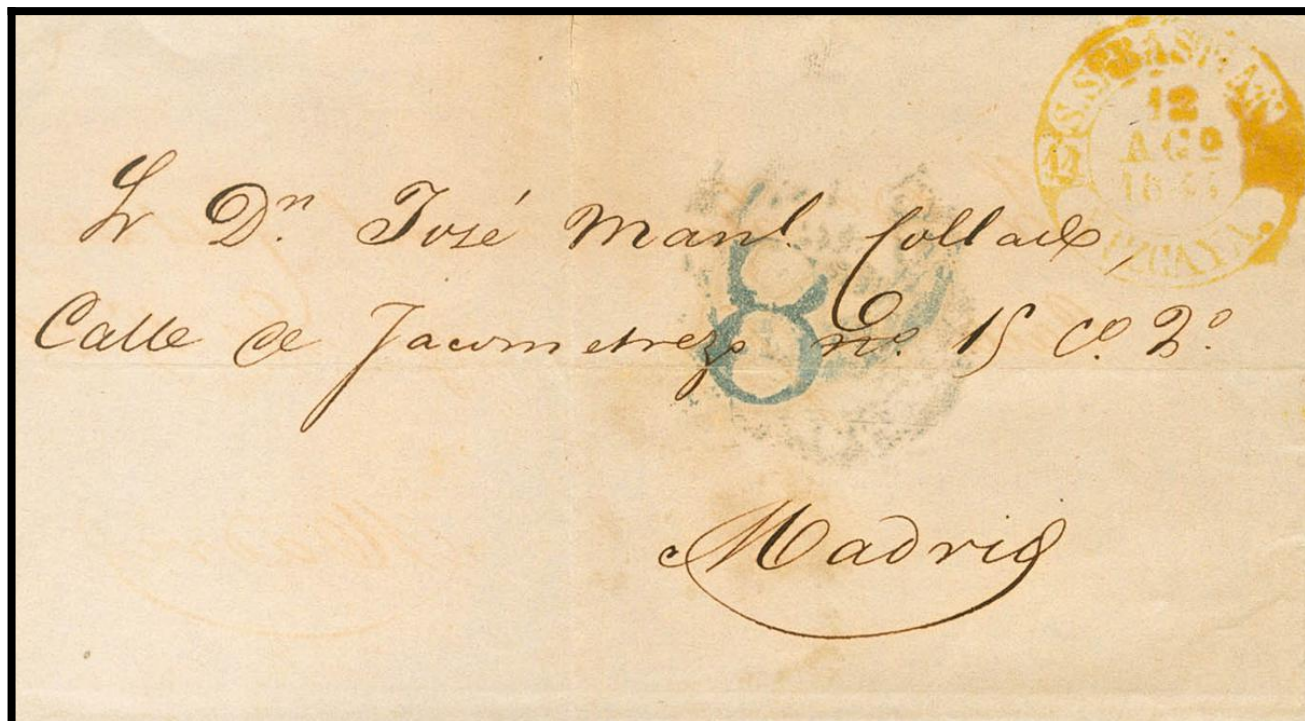 S. SEBASTIAN
12
AGO
14
Sr Dn. José Manl. Collado,
8
Calle de Jacometrezo no. 15 co. 2º.
Madrid